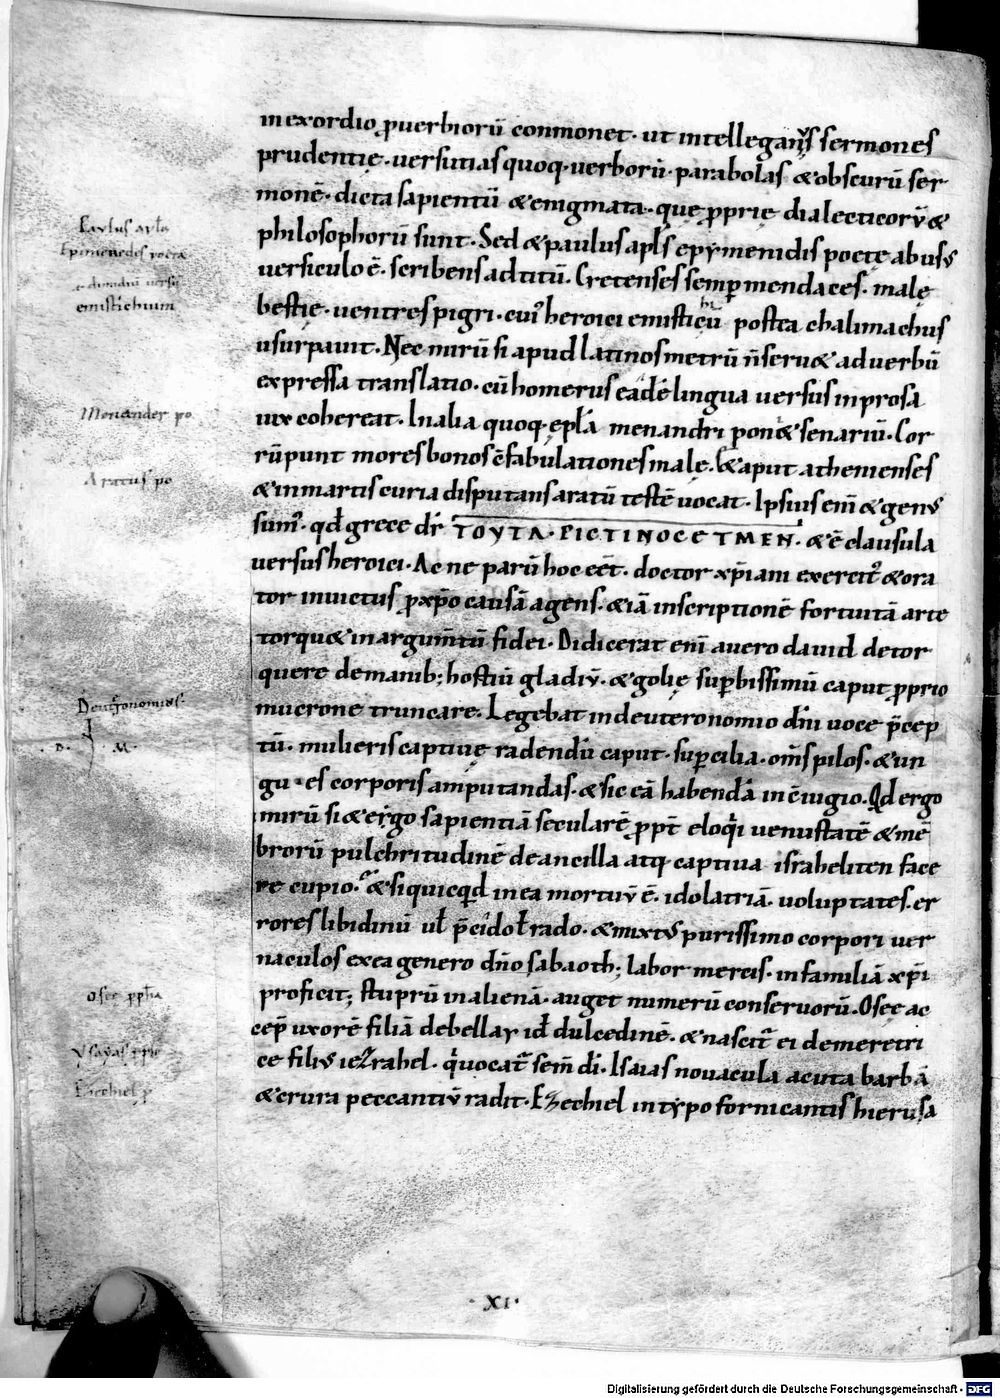 in exordio ꝓuerbiorū conmonet· ut intellegam᷒ sermones
prudentię· uersutiasquoq· uerborū· parabolas &obscurū ser
monē· dicta sapientū &enigmata· quę ꝓprię dialecticorū &
philosophorū sunt· Sed &paulus apl̄s epymenidis poetę abusus
uersiculo ē· scribens adtitū· Cretenses semꝑ mendaces· malę
bestię· uentres pigri· cui᷒ heroici emisticũ postea chalimachus
usurpauit· Nec mirū si apud latinos metrū n̄ seru& aduerbū
expressa translatio· cū homerus eadē lingua uersus inprosa
uix cohereat· In alia quoq· epl̄a menandri pon& senariū· Cor
rūpunt mores bonos cfabulationes malę· &aput athenienses
&in martis curia disputans aratū testē uocat· Ipsius enī &genus
sum᷒· qd̄ grece dr̄ ΤΟΥΤΛ· ΡΙСΤΙΝΟСΕΤΜΕΝ· &ē clausula
uersus heroici· Ac ne parū hoc eēt· doctor xp̄iani exercit᷒ &ora
tor inuictus ꝓ xp̄o causā agens· &iā inscriptionē fortuitā arte
torqu& in argumtū fidei· Didicerat enī auero dauid detor
quere demanib; hostiū gladiū· &golię suꝑbissimū caput ꝓprio
mucrone truncare· Legebat in deuteronomio dn̄i uoce p̄cep
tū· mulieris captiuę radendū caput· suꝑcilia· om̄s pilos· &un
gues corporis amputandas· &sic eā habendā in ciugio· Qd̄ ergo
mirū si &ergo sapientiā secularē ꝓpt̄ eloq̇i uenustatē &mē
brorū pulchritudinē deancilla atq· captiua israheliten face
re cupio· &siquicqd̄ in ea mortuū ē· idolatriā· uoluptates· er
rores libidinū ul̄ p̄cido ul̄ rado· &mixtus purissimo corpori uer
naculos ex ea genero dn̄o sabaoth; labor meus· in familiā xp̄i
proficit; stuprū in alienā· auget numerū conseruorū· Osee ac
cep̄ uxorē filiā debellay id̄ dulcedinē· &nascit̄ ei demeretri
ce filius iezrahel· q̇uocat̄ sem̄ di᷒· Isaias nouacula acuta barbā
&crura peccantiū radit· Ezechiel in typo fornicantis hierusa
Paulus apl̄s
Epimenedes poeta
emistichium
Menander po
Aratus po
Deut̄onomius·
Osee ꝓpha
Ysayas ꝓphe
Ezechiel ꝓ
·XI·
Digitalisierung gefördert durch die Deutsche Forschungsgemeinschaft - DFG